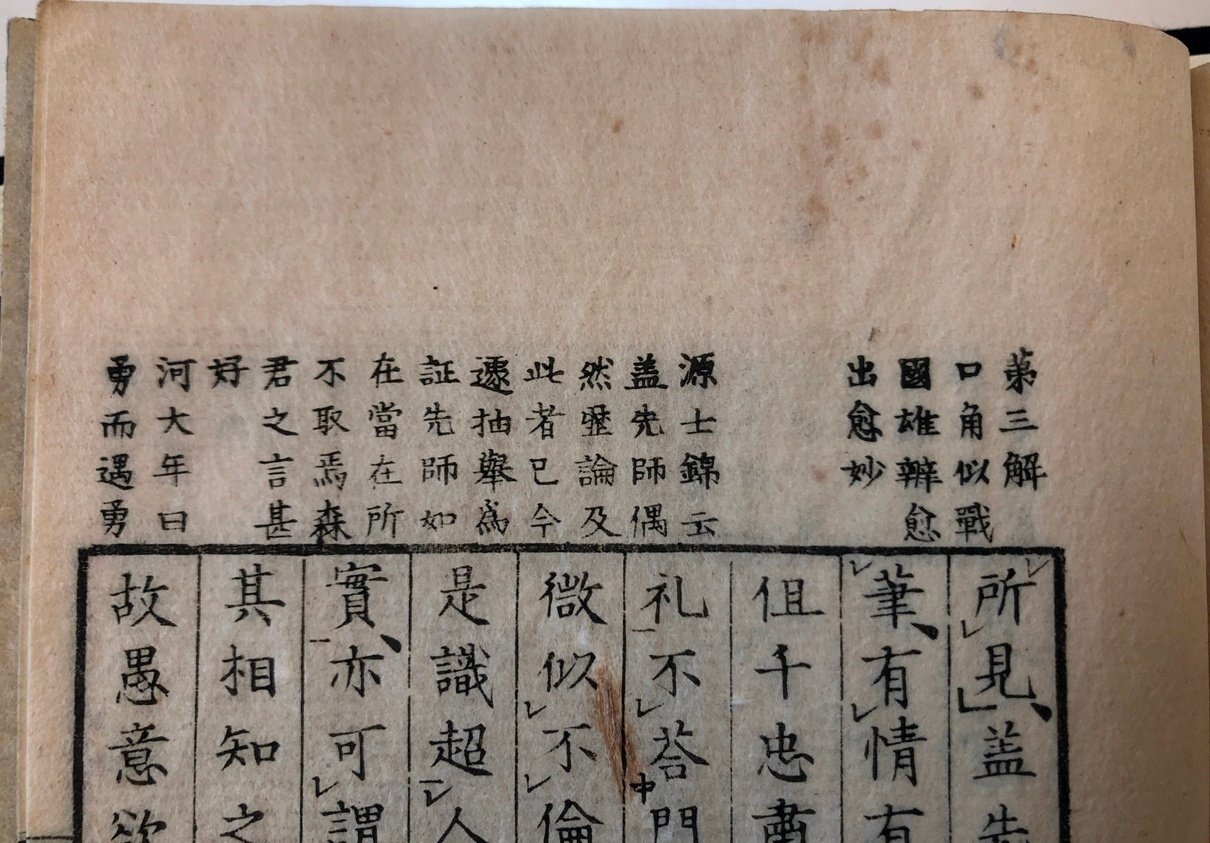 苐三解
口角似戰
國雄辨愈
出愈妙
源士錦云
盖先師偶
然歷論及
此者已今
遽抽舉為
証先師如
在當在所
不取焉森
君之言甚
好
河大年曰
勇而遇勇
所見盖先
筆有情有
伹千忠肅
礼不荅門
微似不倫
是識超人
實亦可謂
其相知之
故愚意欲